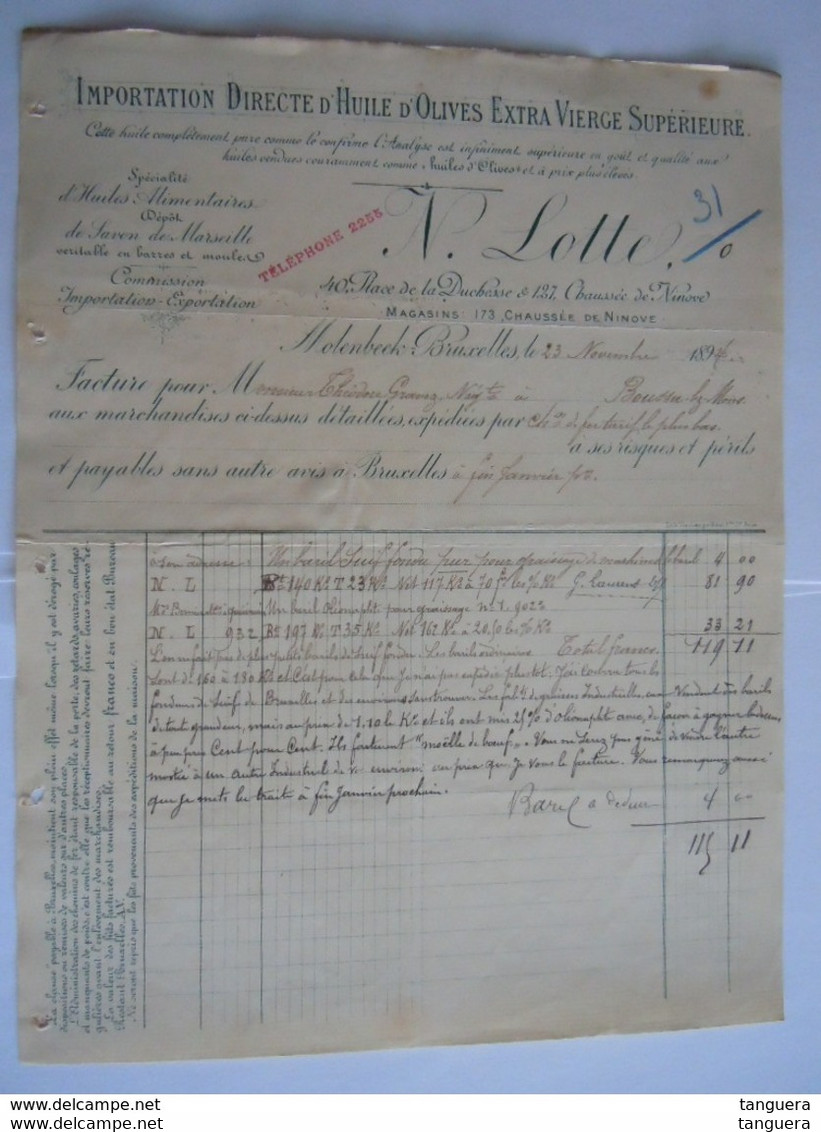 IMPORTATION DIRECTE D'HUILE D'OLIVES EXTRA VIERGE SUPÉRIEURE.
Cette huile complètement pure comme le confirme l'Analyse est infiniment supérieure en goût et qualité aux
huiles vendues couramment comme "huiles d'Olives" et à prix plus élevés.
Spécialité
d'Huiles Alimentaires
Dépôt
de Savon de Marseille
veritable en barres et moules
Commission
Importation-Exportation
TÉLÉPHONE 2255
N. Lotte.
31
40, Place de la Duchesse & 127, Chaussée de Ninove
MAGASINS: 173, CHAUSSÉE DE NINOVE
Molenbeek-Bruxelles, le 23 Novembre 1894
Facture pour Monsieur Théodore Gravez Négt à Boussu lez Mons
aux marchandises ci-dessus détaillées, expédiées par ch. de fer tarif le plus bas
à ses risques et périls
et payables sans autre avis à Bruxelles à fin Janvier
à son adresse: Un baril Suif fondu pur pour graissage de machines 4 00
N. L Bt 140 Ko T 23 Ko Net 117 Ko à 70 f les % Ko G. Laurent 81 90
Un baril Oléonaphte pour graissage no 1. 902
N. L 932 Bt 197 Ko T 35 Ko Net 162 Ko à 20.50 les % Ko 33 21
L'on ne fait pas de plus petits barils de Suif fondu. Les barils ordinaires Total francs 119 11
sont de 160 à 180 Ko et c'est pour cela que Je n'ai pas expédié plustot. J'ai couru tous les
fondeurs de Suif de Bruxelles et des environs sans trouver. Les fabts de graisses Industrielles vendent des barils
de tout grandeur, mais au prix de 1.10 le Ko et ils ont mis 25% d'oléonaphte avec, de façon à gagner
à peu près Cent pour Cent. Ils facturent "moëlle de bœuf". Vous ne serez pas gêné de vendre l'autre
moitié à un autre Industriel de vos environs au prix que Je vous le facture. Vous remarquez aussi
que Je mets la traite à fin Janvier prochain.
Baril a deduire 4 00
115 11
La stance payable à Bruxelles, maintient son plein effet même lorsqu'il y est dérogé par
dispositions ou remises de valeurs sur d'autres places.
L'Administration des chemins de fer étant responsable de la perte, des retards, avaries, coulages
et manquants de poids, c'est contre elle que les réceptionnaires devront faire leurs réserves ré-
gulières avant l'enlèvement des marchandises.
La valeur des fûts facturés est remboursable au retour franco et en bon état Bureau
Restant Bruxelles A.V.
Ne seront repris que les fûts provenants des expéditions de la maison.
tanguera
tanguera
tanguera
tanguera